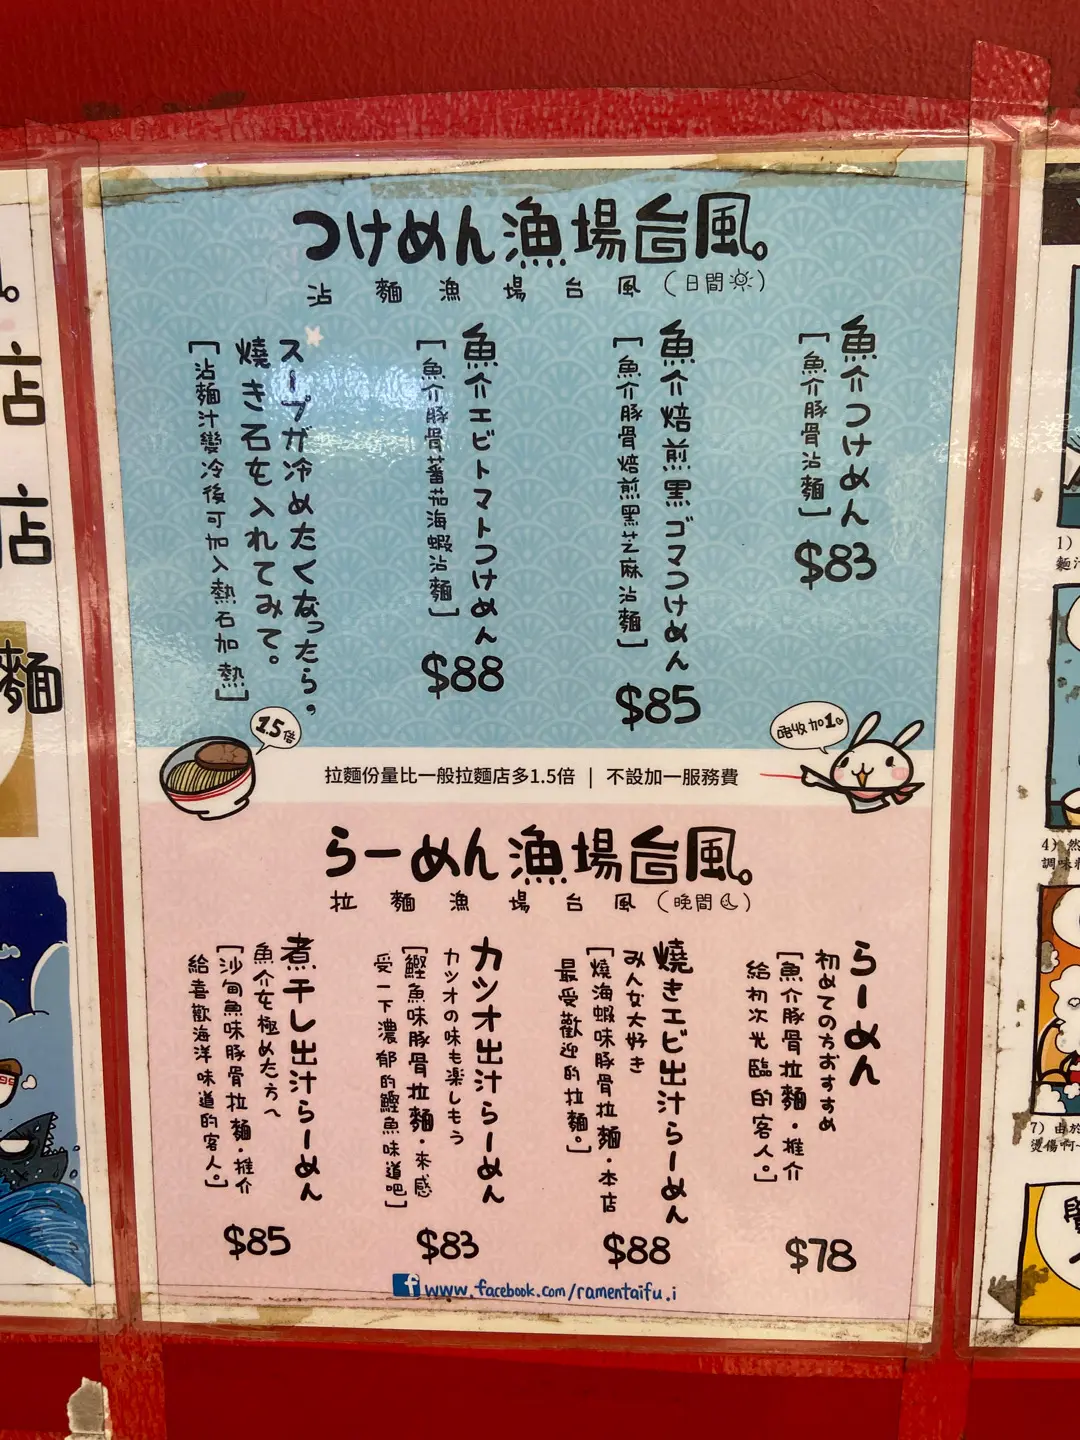 つけめん漁場台風。
沾麵漁場台風(日間)
魚介つけめん
[魚介豚骨沾麵]
$83
魚介焙煎黒ゴマつけめん
[魚介豚骨焙煎黑芝麻沾麵]
$85
魚介エビトマトつけめん
[魚介豚骨蕃茄海蝦沾麵]
$88
スープが冷めたくなったら。
焼き石を入れてみて。
[沾麵汁變冷後可加入熱石加熱]
1.5倍
唔收加1
拉麵份量比一般拉麵店多1.5倍 | 不設加一服務費
らーめん漁場台風。
拉麵漁場台風(晚間)
らーめん
初めての方おすすめ
[魚介豚骨拉麵・推介
給初次光臨的客人。]
$78
焼きエビ出汁らーめん
みんな大好き
[燒海蝦味豚骨拉麵・本店
最受歡迎的拉麵。]
$88
カツオ出汁らーめん
カツオの味も楽しもう
[鰹魚味豚骨拉麵・來感
受一下濃郁的鰹魚味道吧]
$83
煮干し出汁らーめん
魚介を極めた方へ
[沙甸魚味豚骨拉麵・推介
給喜歡海洋味道的客人。]
$85
www.facebook.com/ramentaifu.i
店
店
麵
1)
麵汁
4) 然
調味料
7) 由於
燙傷啊